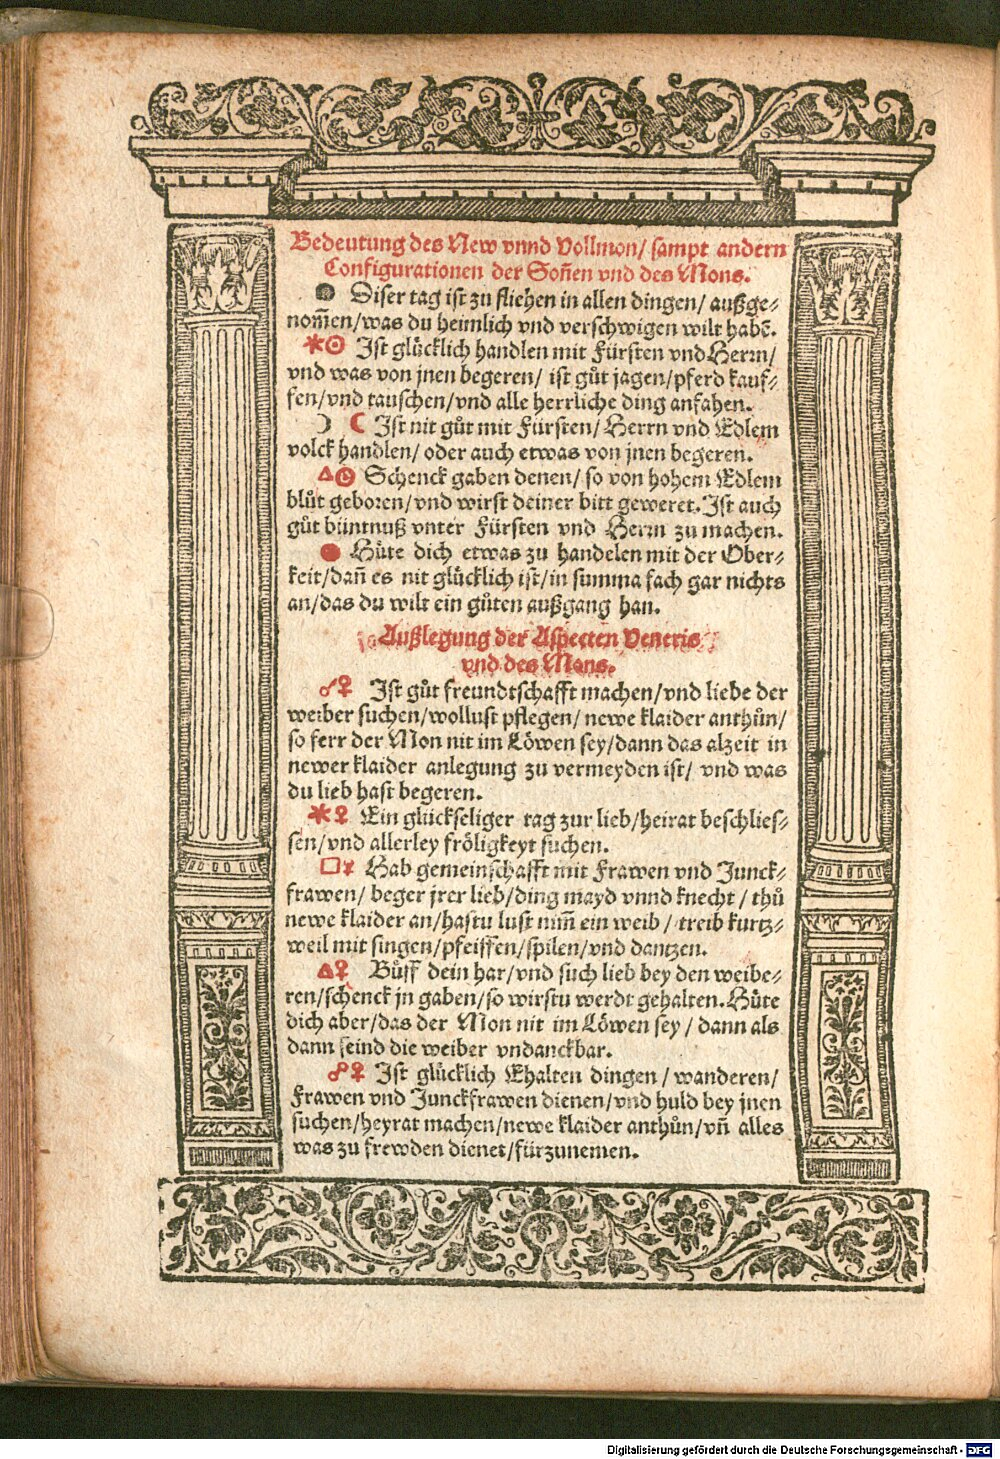 Bedeutung des New vnnd Vollmon/ sampt andern
Configurationen der Soñen vnd des Mons.
● Diser tag ist zu fliehen in allen dingen/ außge-
nom̃en/was du heimlich vnd verschwigen wilt habē.
⚹☉ Ist glücklich handlen mit Fürsten vnd Herrn/
vnd was von jnen begeren/ ist gůt jagen/pferd kauf-
fen/vnd tauschen/vnd alle herrliche ding anfahen.
☽ ☾ Ist nit gůt mit Fürsten/ Herrn vnd Edlem
volck handlen/ oder auch etwas von jnen begeren.
△☉ Schenck gaben denen/ so von hohem Edlem
blůt geboren/vnd wirst deiner bitt geweret. Ist auch
gůt büntnuß vnter Fürsten vnd Herrn zu machen.
● Hüte dich etwas zu handelen mit der Ober-
keit/dañ es nit glücklich ist/in summa fach gar nichts
an/das du wilt ein gůten außgang han.
Außlegung der Aspecten Veneris
vnd des Mons.
☌♀ Ist gůt freundtschafft machen/vnd liebe der
weiber suchen/wollust pflegen/ newe klaider anthůn/
so ferr der Mon nit im Löwen sey/dann das alzeit in
newer klaider anlegung zu vermeyden ist/ vnd was
du lieb hast begeren.
⚹♀ Ein glückseliger tag zur lieb/heirat beschlies-
sen/vnd allerley fröligkeyt suchen.
□♀ Hab gemeinschafft mit Frawen vnd Junck-
frawen/ beger jrer lieb/ding mayd vnnd knecht / thů
newe klaider an/hastu lust nim̃ ein weib / treib kurtz-
weil mit singen/pfeiffen/spilen/vnd dantzen.
△♀ Büff dein har/vnd such lieb bey den weibe-
ren/schenck jn gaben/so wirstu werdt gehalten. Hüte
dich aber/das der Mon nit im Löwen sey / dann als
dann seind die weiber vndanckbar.
☍♀ Ist glücklich Ehalten dingen / wanderen/
Frawen vnd Junckfrawen dienen/vnd huld bey jnen
suchen/heyrat machen/newe klaider anthůn/vñ alles
was zu frewden dienet/fürzunemen.
Digitalisierung gefördert durch die Deutsche Forschungsgemeinschaft - DFG